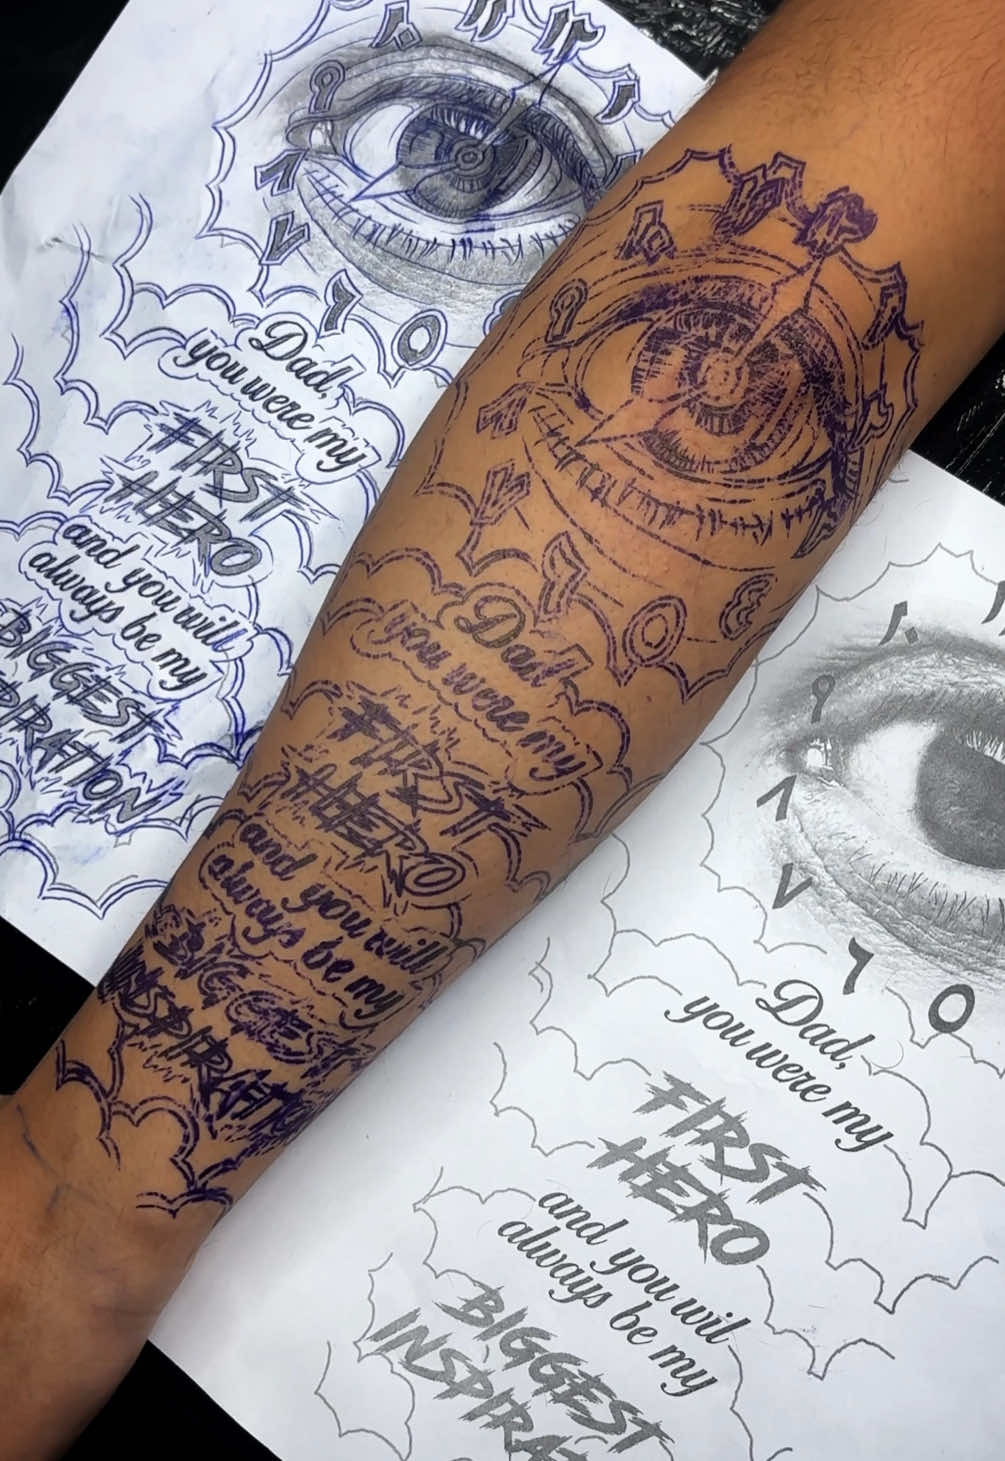 ١٠
١١
١٢
١
٩
٨
٧
٦
٥
Dad,
you were my
FIRST
HERO
and you will
always be my
BIGGEST
PIRATION
١٠
١١
١٢
١
٩
٨
٧
٦
٥
٤
Dad,
you were my
FIRST
HERO
and you will
always be my
BIGGEST
INSPIRATIO
١٠
٩
٨
٧
٦
٥
Dad,
you were my
FIRST
HERO
and you wil
always be my
BIGGEST
INSPIRAT